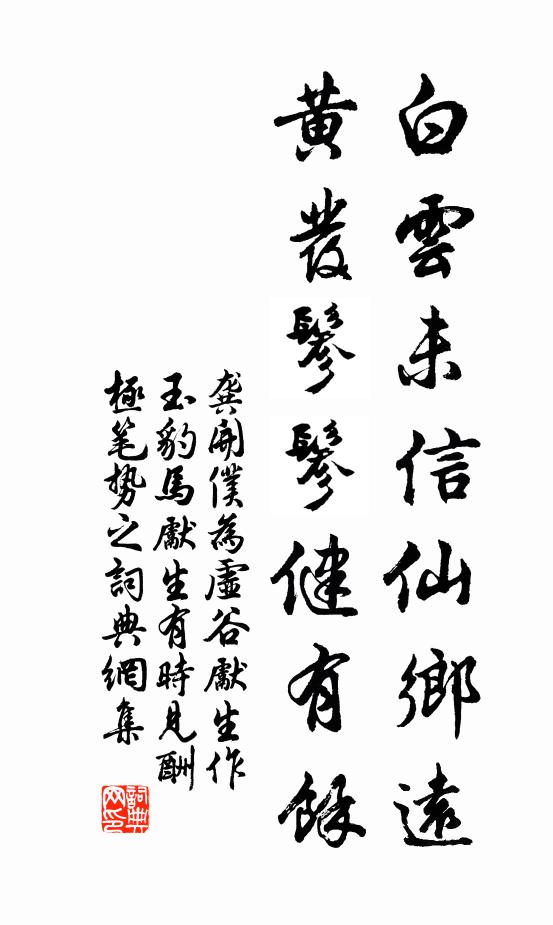 白雲未信仙鄉遠
黃發鬖鬖健有餘
龔開僕為虛谷獻生作
玉豹馬獻生有時見酬
極笔势之詞典網集
詞典网印